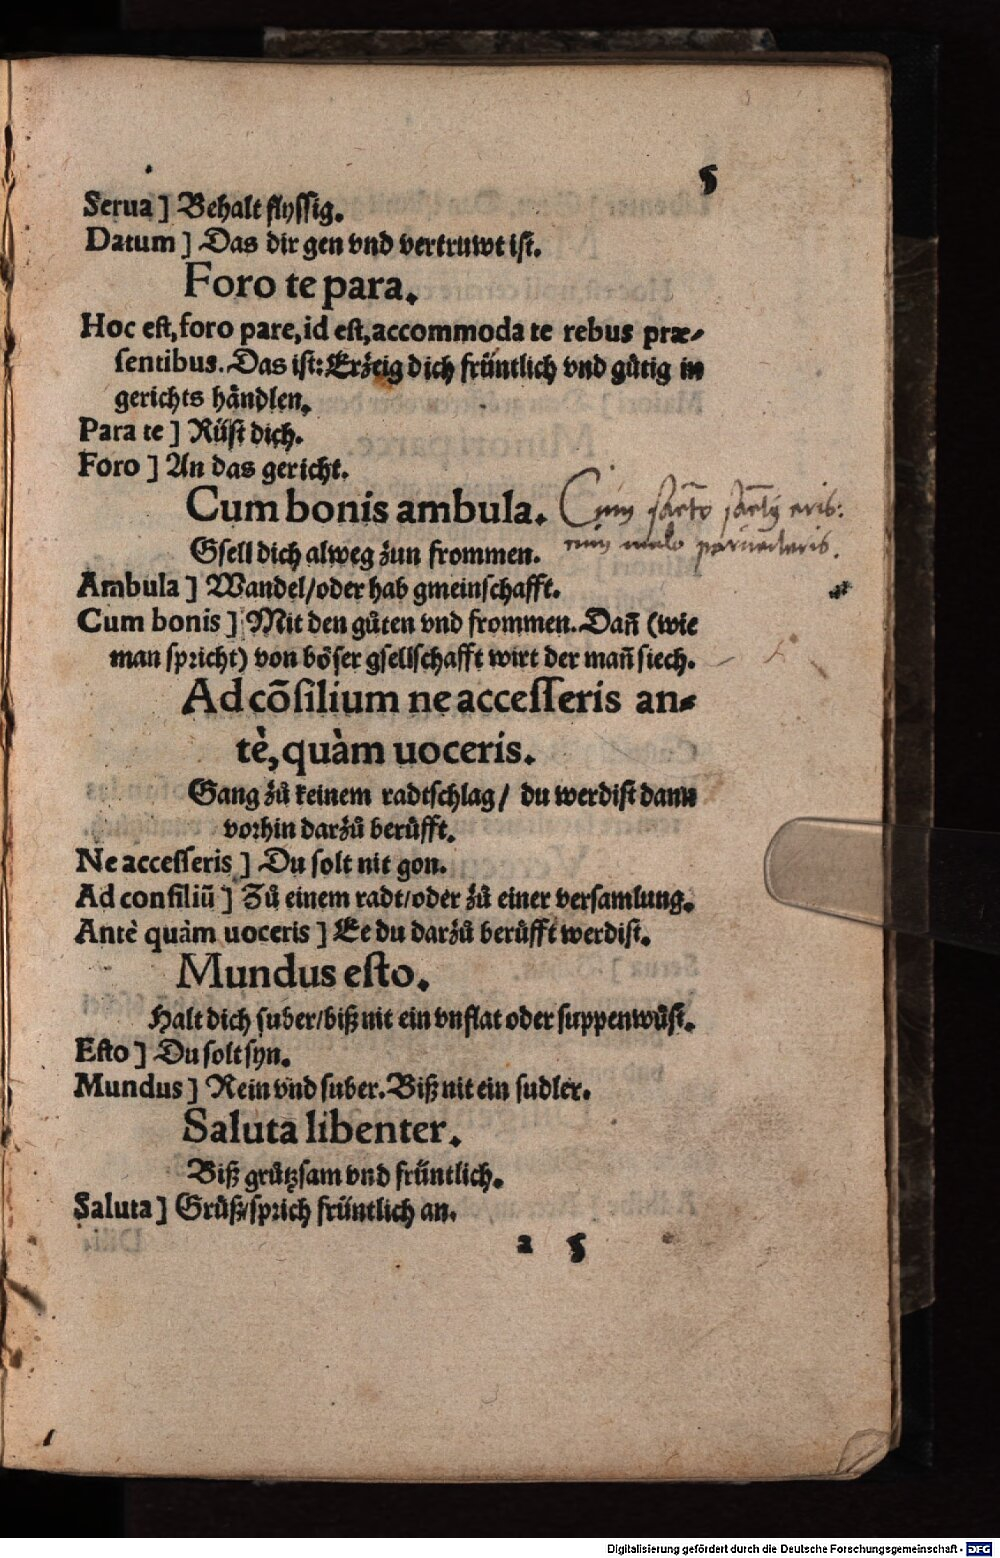 5
Serua] Behalt flyssig.
Datum] Das dir gen vnd vertruwt ist.
Foro te para.
Hoc est, foro pare, id est, accommoda te rebus præ⸗
sentibus. Das ist: Erzeig dich früntlich vnd gůtig in
gerichts händlen.
Para te] Rüst dich.
Foro] An das gericht.
Cum bonis ambula.
Cum sacto
eris:
cum malo peruerteris.
Gsell dich alweg zun frommen.
Ambula] Wandel/oder hab gmeinschafft.
Cum bonis] Mit den gůten vnd frommen. Dañ (wie
man spricht) von böser gsellschafft wirt der mañ siech.
Ad cõsilium ne accesseris an⸗
tè, quàm uoceris.
Gang zů keinem radtschlag/ du werdist dann
vorhin darzů berůfft.
Ne accesseris] Du solt nit gon.
Ad consiliũ] Zů einem radt/oder zů einer versamlung.
Antè quàm uoceris] Ee du darzů berůfft werdist.
Mundus esto.
Halt dich suber/biß nit ein vnflat oder suppenwůst.
Esto] Du solt syn.
Mundus] Rein vnd suber. Biß nit ein sudler.
Saluta libenter.
Biß grůtzsam vnd früntlich.
Saluta] Grůß/sprich früntlich an.
a 5
Digitalisierung gefördert durch die Deutsche Forschungsgemeinschaft - DFG